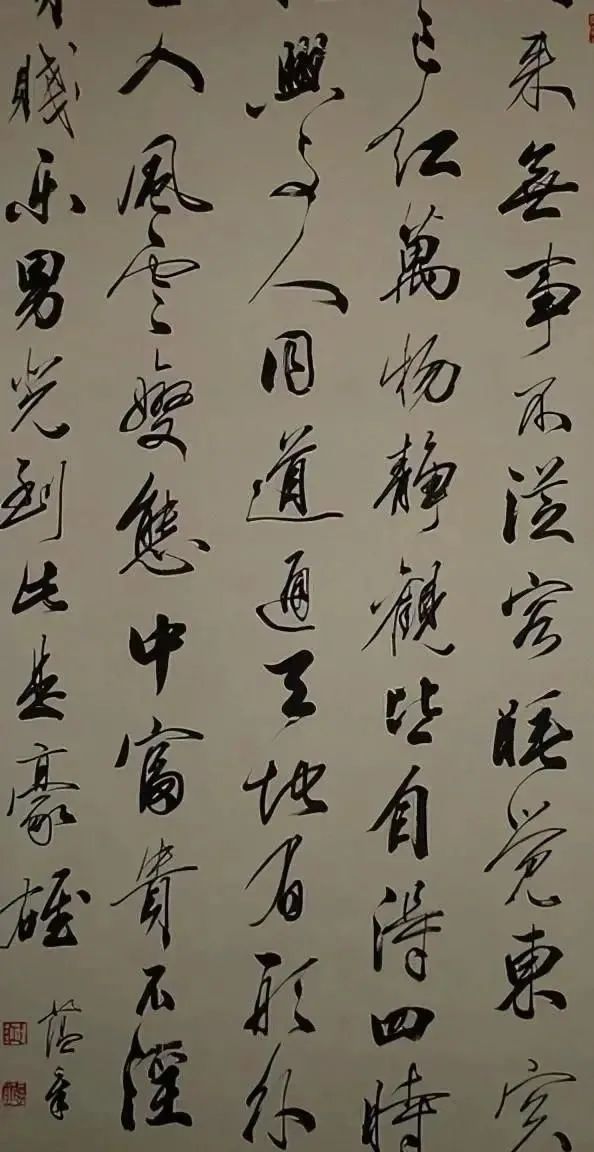 来無事不從容睡觉東窗
已红萬物静觀皆自得四時
興与人同道通天地有形外
入風雲變態中富貴不淫
賤乐男児到此是豪雄